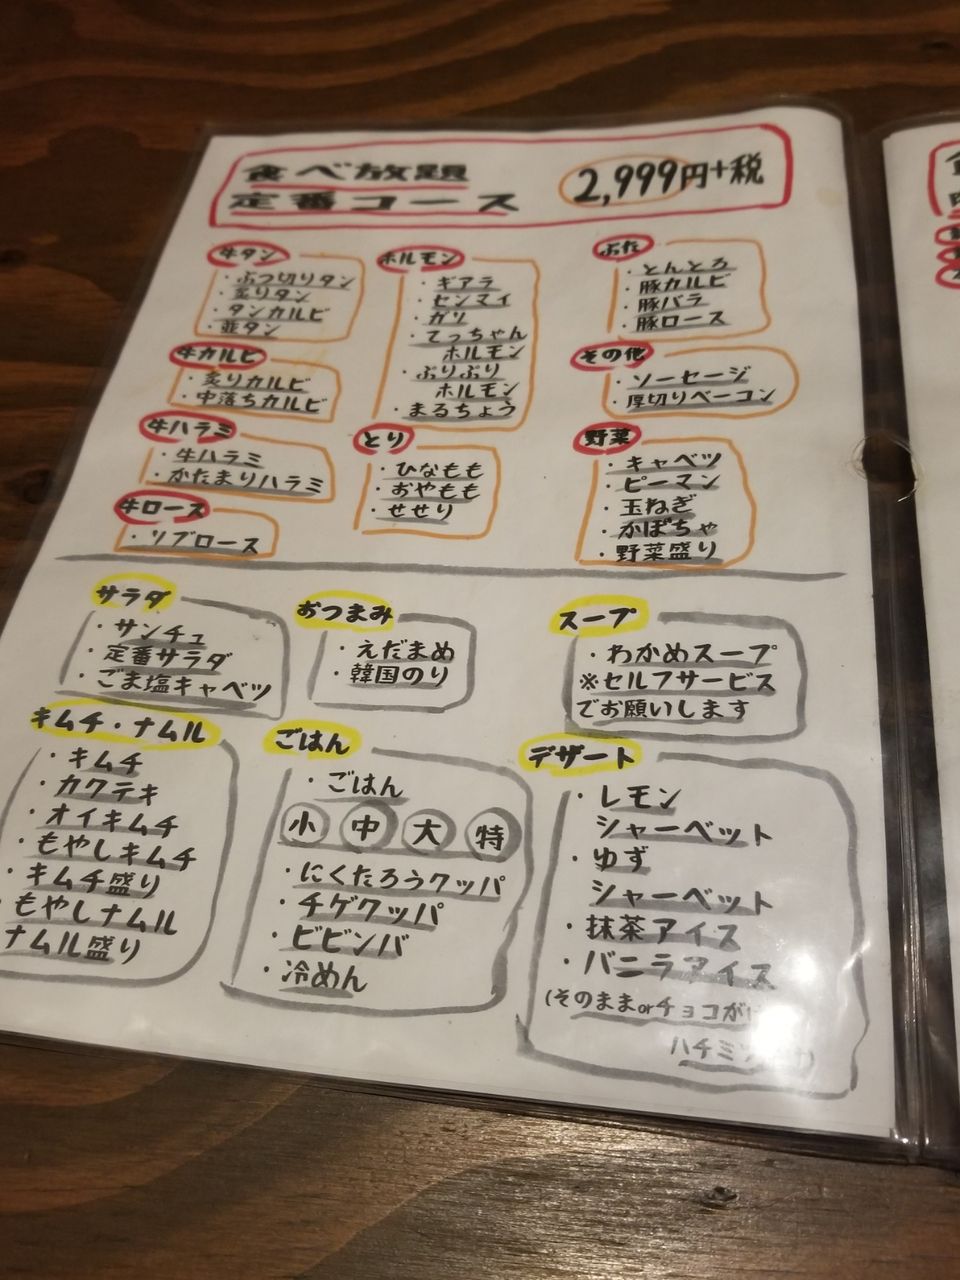 食べ放題
定番コース
2,999円+税
牛タン
・ぶつ切りタン
・炙りタン
・タンカルビ
・並タン
牛カルビ
・炙りカルビ
・中落ちカルビ
牛ハラミ
・牛ハラミ
・かたまりハラミ
牛ロース
・リブロース
ホルモン
・ギアラ
・センマイ
・ガリ
・てっちゃん
ホルモン
・ぷりぷり
ホルモン
・まるちょう
とり
・ひなもも
・おやもも
・せせり
ぶた
・とんとろ
・豚カルビ
・豚バラ
・豚ロース
その他
・ソーセージ
・厚切りベーコン
野菜
・キャベツ
・ピーマン
・玉ねぎ
・かぼちゃ
・野菜盛り
サラダ
・サンチュ
・定番サラダ
・ごま塩キャベツ
キムチ・ナムル
・キムチ
・カクテキ
・オイキムチ
・もやしキムチ
・キムチ盛り
・もやしナムル
ナムル盛り
おつまみ
・えだまめ
・韓国のり
ごはん
・ごはん
小 中 大 特
・にくたろうクッパ
・チゲクッパ
・ビビンバ
・冷めん
スープ
・わかめスープ
※セルフサービス
でお願いします
デザート
・レモン
シャーベット
・ゆず
シャーベット
・抹茶アイス
・バニラアイス
(そのままorチョコが
ハチミツ